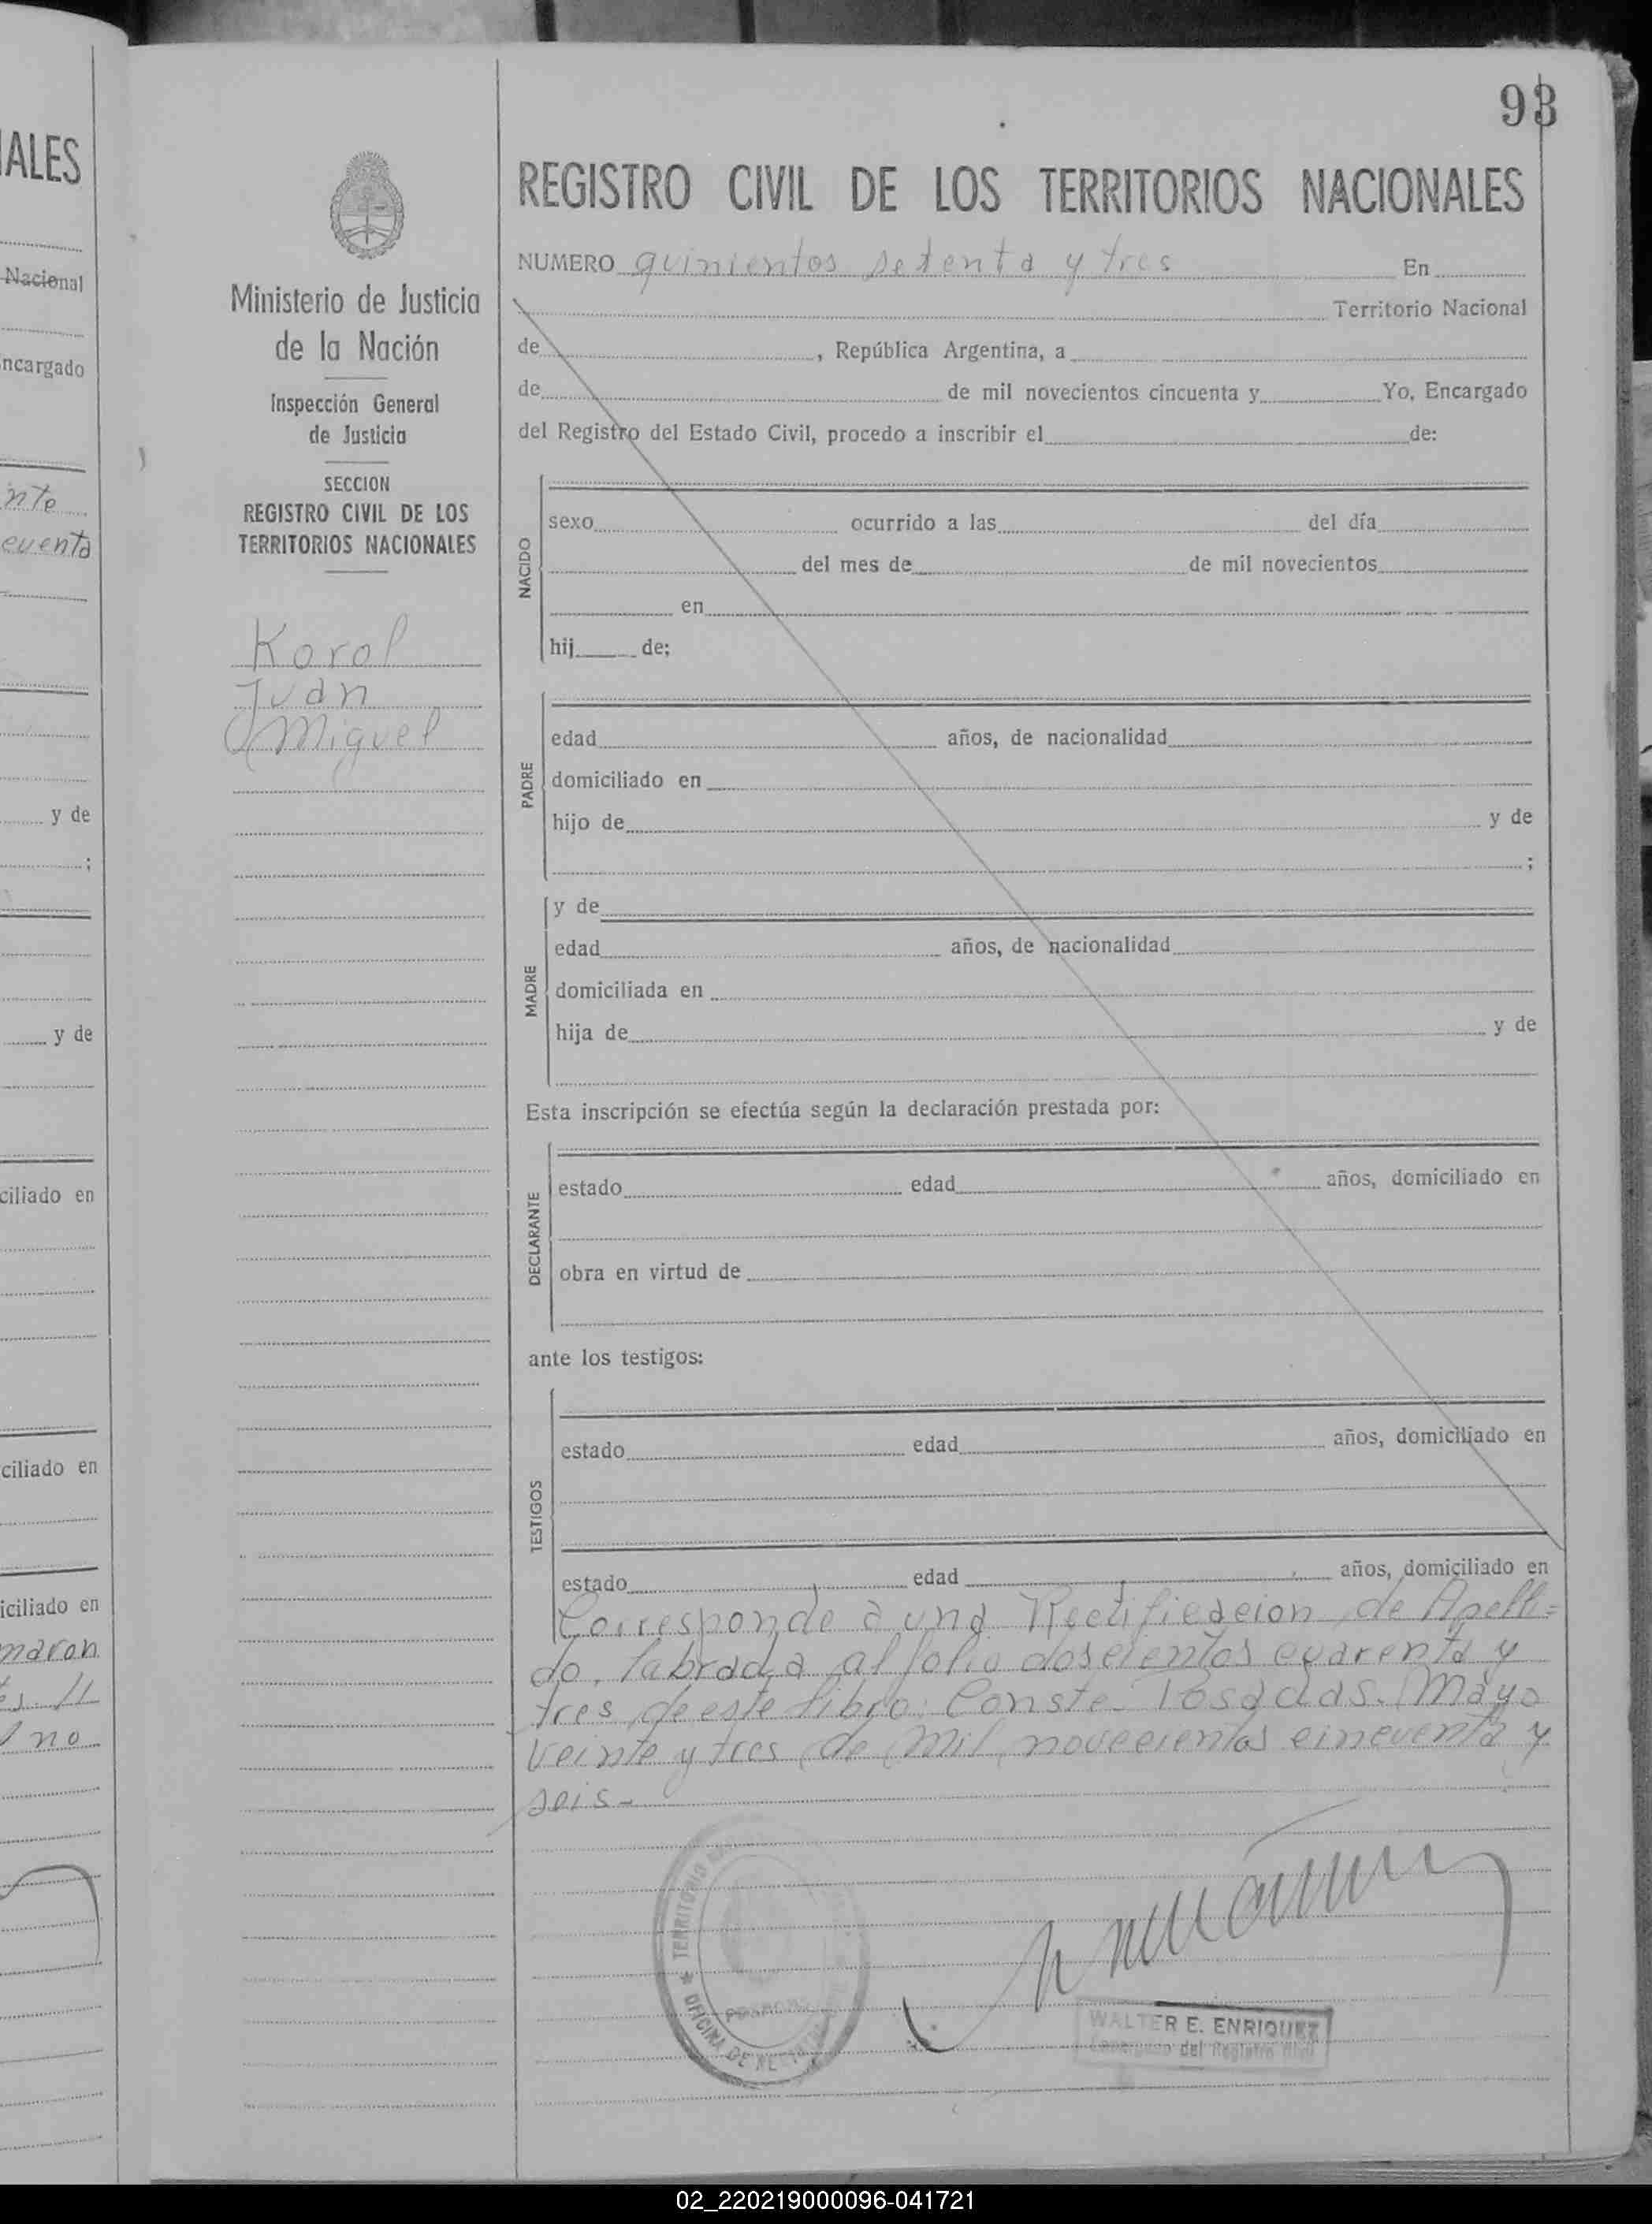 ALES
Nacional
ncargado
nte
cuenta
y de
;
y de
ciliado en
ciliado en
iciliado en
maron
no
93
Ministerio de Justicia
de la Nación
Inspección General
de Justicia
SECCION
REGISTRO CIVIL DE LOS
TERRITORIOS NACIONALES
Korol
Juan
Miguel
REGISTRO CIVIL DE LOS TERRITORIOS NACIONALES
NUMERO quinientos setenta y tres En
Territorio Nacional
de , República Argentina, a
de de mil novecientos cincuenta y Yo, Encargado
del Registro del Estado Civil, procedo a inscribir el de:
NACIDO
sexo ocurrido a las del día
del mes de de mil novecientos
en
hij de;
PADRE
edad años, de nacionalidad
domiciliado en
hijo de y de
;
MADRE
y de
edad años, de nacionalidad
domiciliada en
hija de y de
Esta inscripción se efectúa según la declaración prestada por:
DECLARANTE
estado edad años, domiciliado en
obra en virtud de
ante los testigos:
TESTIGOS
estado edad años, domiciliado en
estado edad años, domiciliado en
Corresponde a una Rectificacion de Apelli=
do, labrada al folio doscientos cuarenta y
tres de este libro. Conste. Posadas. Mayo
veinte y tres de mil novecientos cincuenta y
seis -
TERRITORIO
OFICINA DE
WALTER E. ENRIQUEZ
Encargado del Registro Civil
02_220219000096-041721